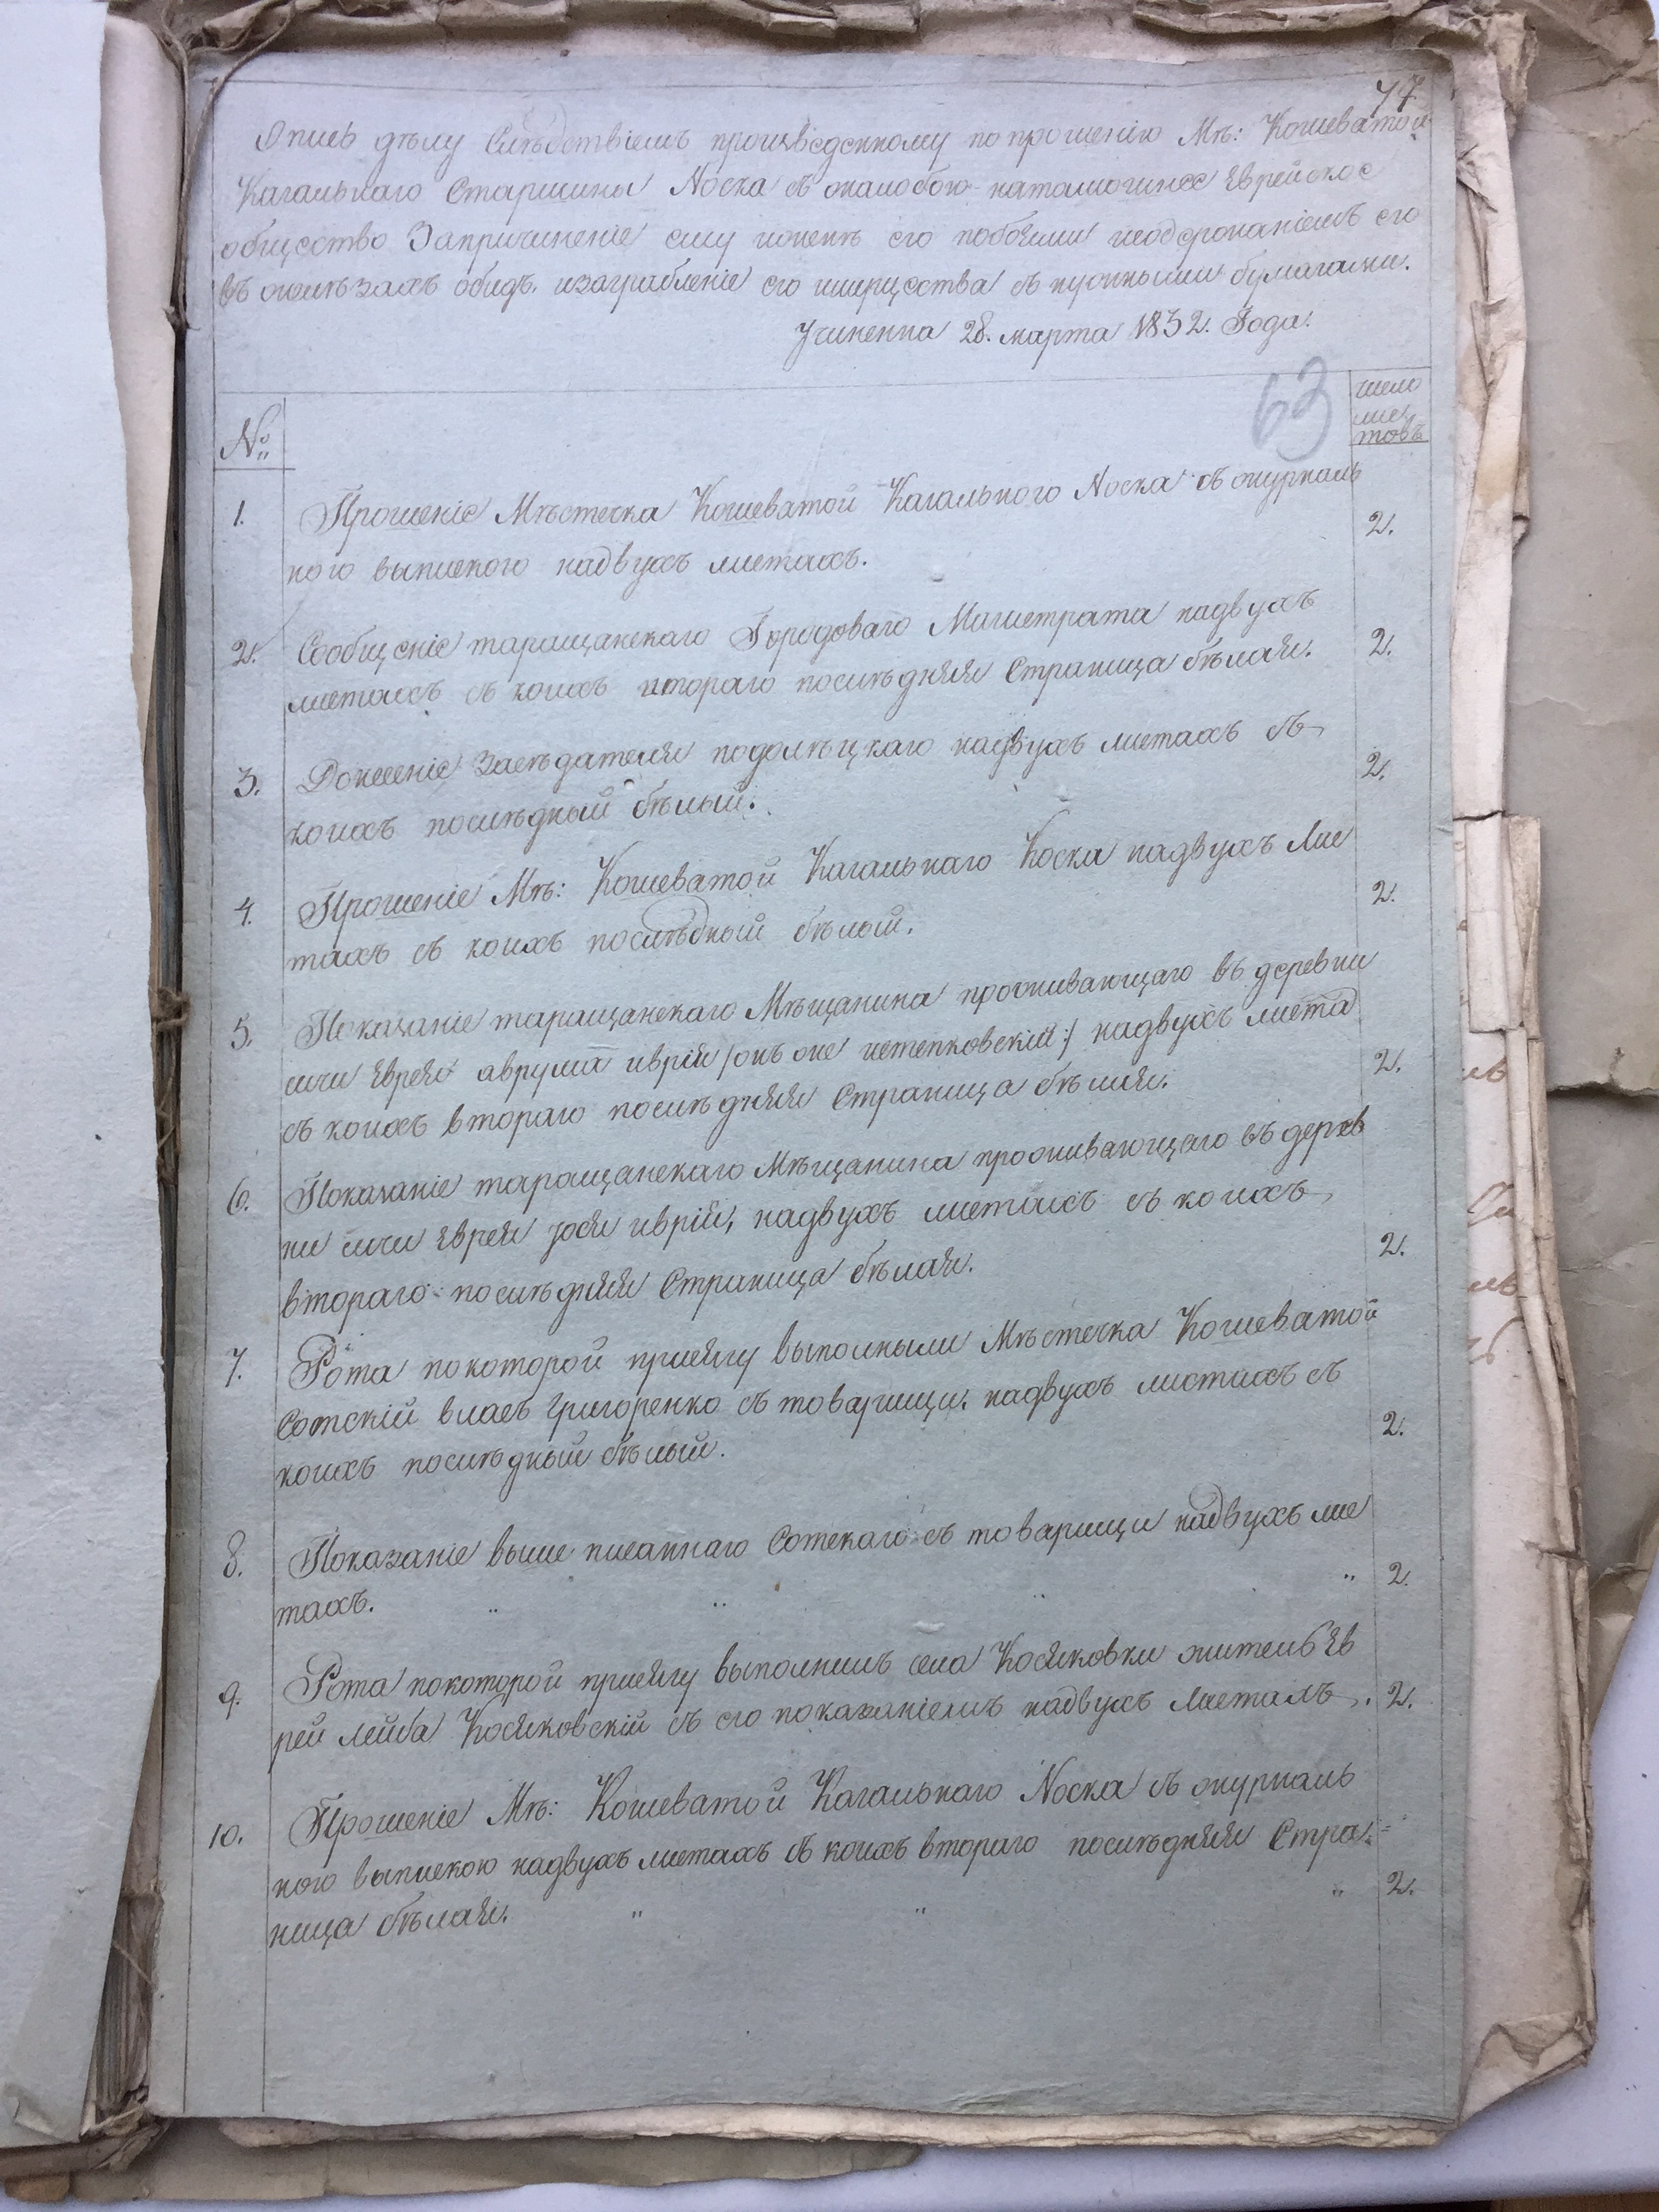 77
Опись делу Следствіемъ произведенному по прошенію Мѣ: Кошеватой
Кагальнаго Старшины Носка съ жалобою натамошнее Еврейское
общество Запричиненіе ему женѣ его побоями исодержаніемъ его
въ желѣзахъ обидъ, изаграбленіе его имущества съ нужными бумагами.
Учиненна 28. марта 1832. Года.
63
№
число лис товъ
1. Прошеніе Мѣстечка Кошеватой Кагального Носка съ журналь
ного выпискою надвухъ листахъ. 2.
2. Сообщеніе таращанскаго Городоваго Магистрата надвухъ
листахъ съ коихъ втораго послѣдняя Страница бѣлая. 2.
3. Донесеніе Засѣдателя подолѣцкаго надвухъ листахъ съ
коихъ послѣдный бѣлый. 2.
4. Прошеніе Мѣ: Кошеватой Кагальнаго Носка надвухъ лис
тахъ съ коихъ послѣдный бѣлый. 2.
5. Показаніе таращанскаго Мѣщанина проживающаго въ деревни
Еврея аврума надвухъ листа
съ коихъ втораго послѣдняя Страница бѣлая. 2.
6. Показаніе таращанскаго Мѣщанина проживающаго въ дерев
ни Еврея надвухъ листахъ съ коихъ
втораго послѣдняя Страница бѣлая. 2.
7. Рота покоторой присягу выполныли Мѣстечка Кошеватой
Сотскій власъ григоренко съ товарищи, надвухъ листахъ съ
коихъ послѣдный бѣлый. 2.
8. Показаніе выше писаннаго Сотскаго съ товарищи надвухъ лис
тахъ. 2.
9. Рота покоторой присягу выполнилъ села Косяковки житель Ев
рей лейба Косяковскій съ его показаніемъ надвухъ листахъ. 2.
10. Прошеніе Мѣ: Кошеватой Кагальнаго Носка съ журналь
ного выпискою надвухъ листахъ съ коихъ втораго послѣдняя Стра=
ница бѣлая. 2.